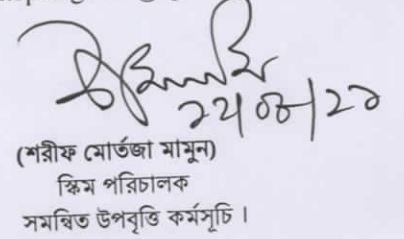 ২২/০৮/২১
(শরীফ মোর্তজা মামুন)
স্কিম পরিচালক
সমন্বিত উপবৃত্তি কর্মসূচি ।